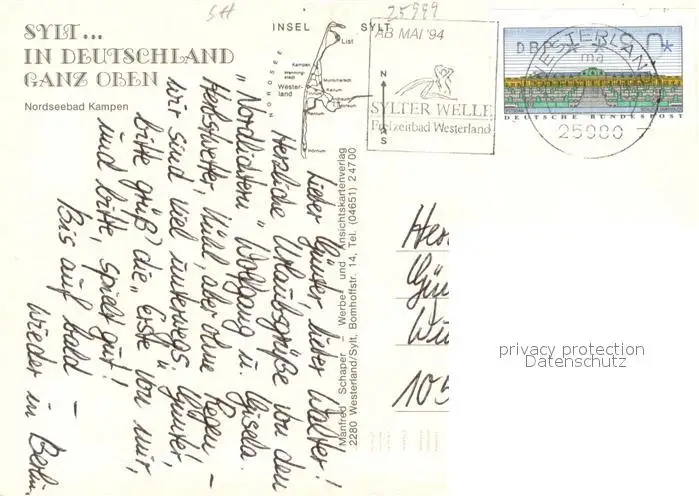 SH
25999
SYLT...
IN DEUTSCHLAND
GANZ OBEN
Nordseebad Kampen
INSEL SYLT
NORDSEE
List
Kampen
Wenningstedt
Westerland
Munkmarsch
Keitum
Morsum
Rantum
Hörnum
N
S
AB MAI '94
SYLTER WELLE
Freizeitbad Westerland
DBP
WESTERLAND
ma
25980
DEUTSCHE BUNDESPOST
Lieber Günter, lieber Walter!
Herzliche Urlaubsgrüße von den
"Nordlichtern" Wolfgang u. Gisela.
Herbstwetter, kühl, aber ohne Regen –
wir sind viel unterwegs. Günter,
bitte grüß' die "Erste" von mir,
und bitte, spielt gut!
Bis auf bald –
wieder in Berlin.
Manfred Schaper – Werbe- und Ansichtskartenverlag
2280 Westerland/Sylt, Bomhoffstr. 14, Tel. (04651) 24700
Her
Gün
105
privacy protection
Datenschutz